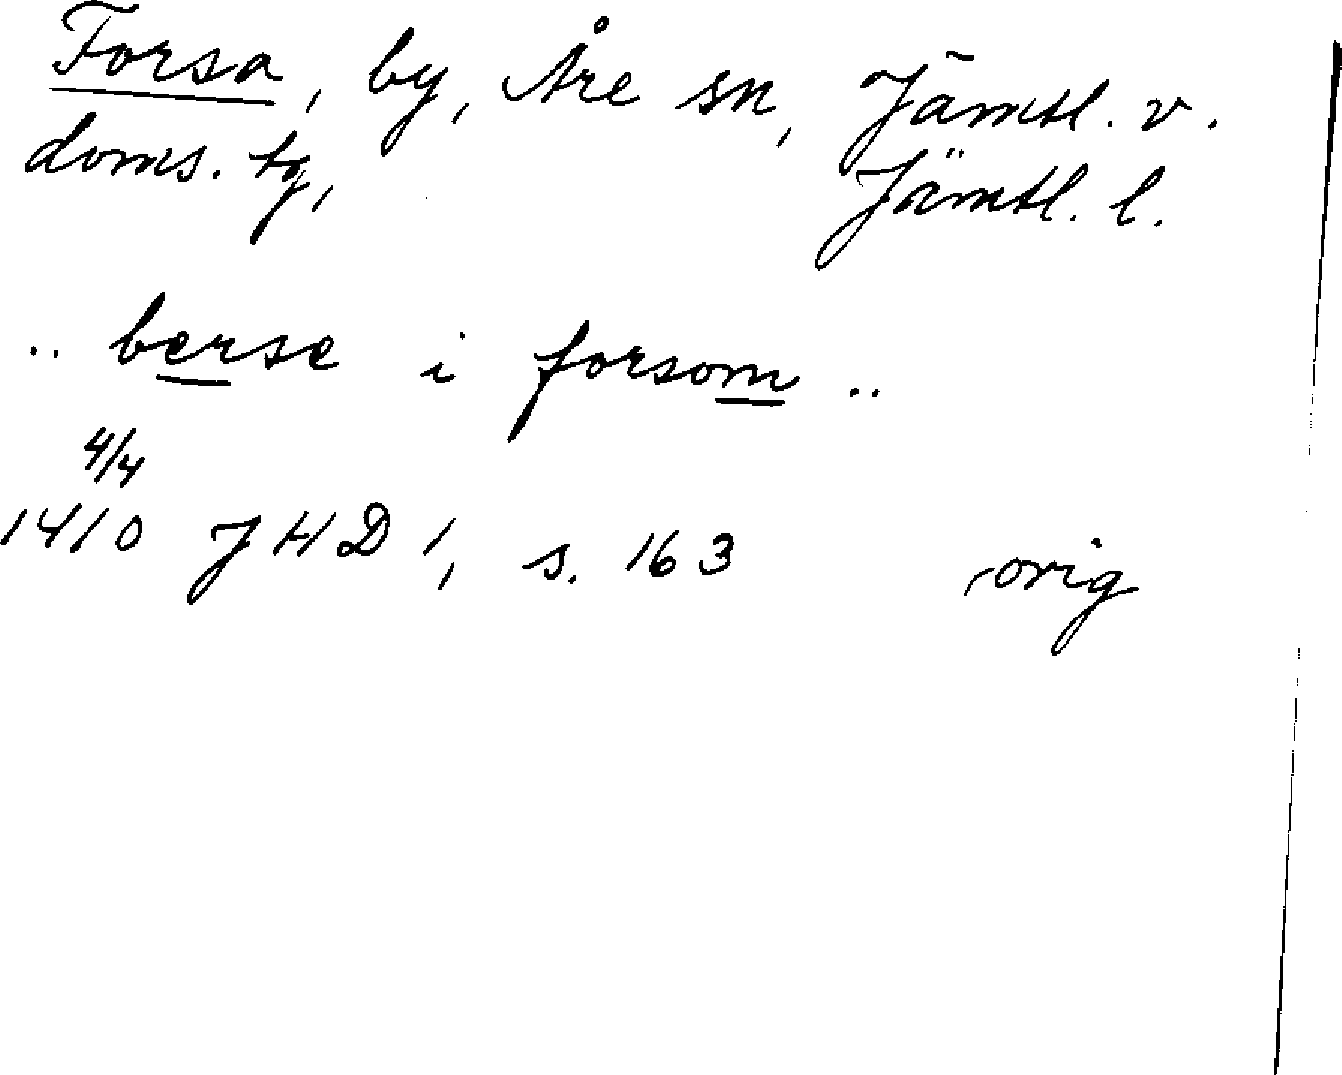 Forsa, by, Åre sn, Jämtl. v.
doms. tg, Jämtl. l.
.. berse i forsom ..
4/4
1410 JHD 1, s. 163 orig